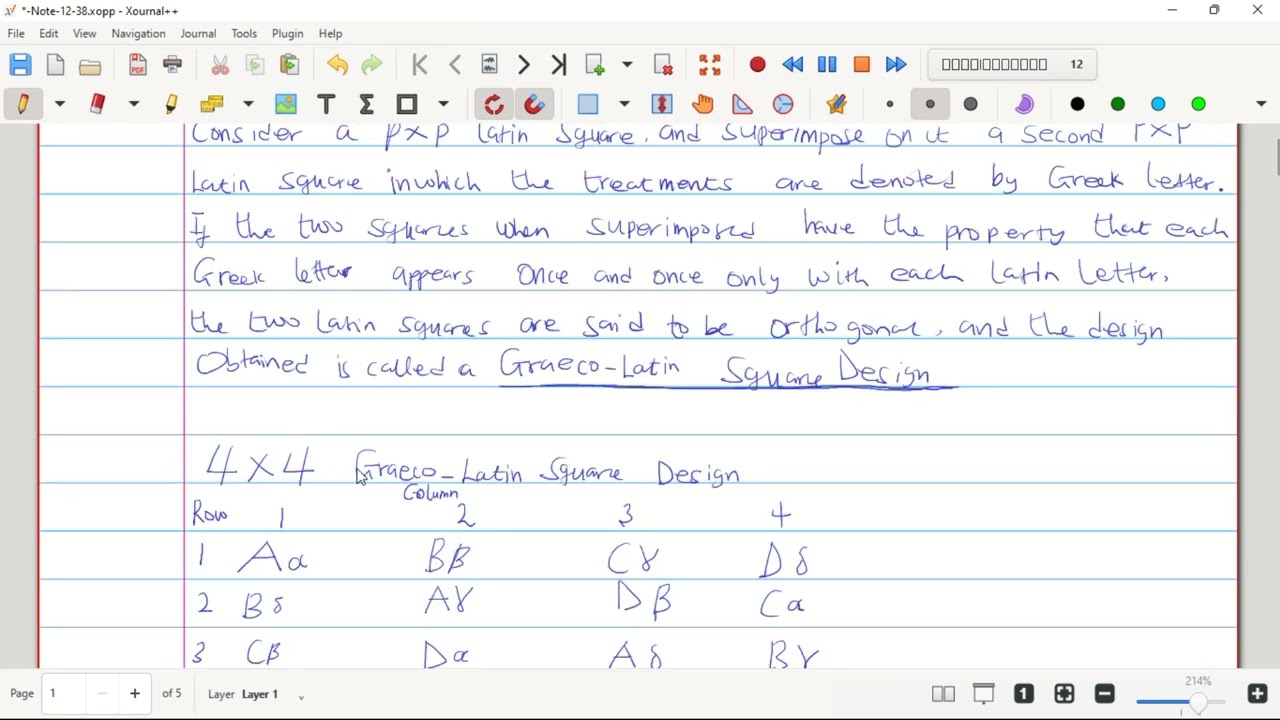 *-Note-12-38.xopp - Xournal++
File Edit View Navigation Journal Tools Plugin Help
12
Consider a pxp latin square, and superimpose on it a second PXP
Latin square inwhich the treatments are denoted by Greek letter.
If the two squares when superimposed have the property that each
Greek letter appears Once and once only with each Latin Letter,
the two Latin squares are said to be orthogonal, and the design
Obtained is called a Graeco-Latin Square Design
4 X 4 Graeco-Latin Square Design
Column
Row 1 2 3 4
1 Aα Bβ Cγ Dδ
2 Bδ Aγ Dβ Cα
3 Cβ Dα Aδ Bγ
Page 1 of 5 Layer Layer 1 214%